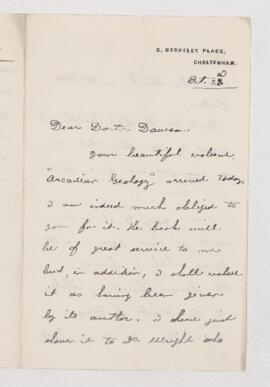 5, BERKELEY PLACE,
CHELTENHAM.
Oct.
Dear Doctor Dawson.
Your beautiful volume
"Arcadian Geology" arrived today.
I am indeed much obliged to
you for it. The book will
be of great service to me
but, in addition, I shall value
it as having been given
by its author. I have just
shown it to Dr Wright who